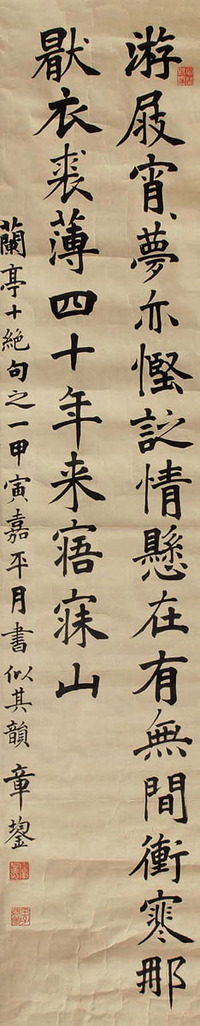 游屐宵夢亦慳訟情懸在有無間衝寒那
厭衣裘薄四十年来寤寐山
蘭亭十絕句之一甲寅嘉平月書似其韻章鋆